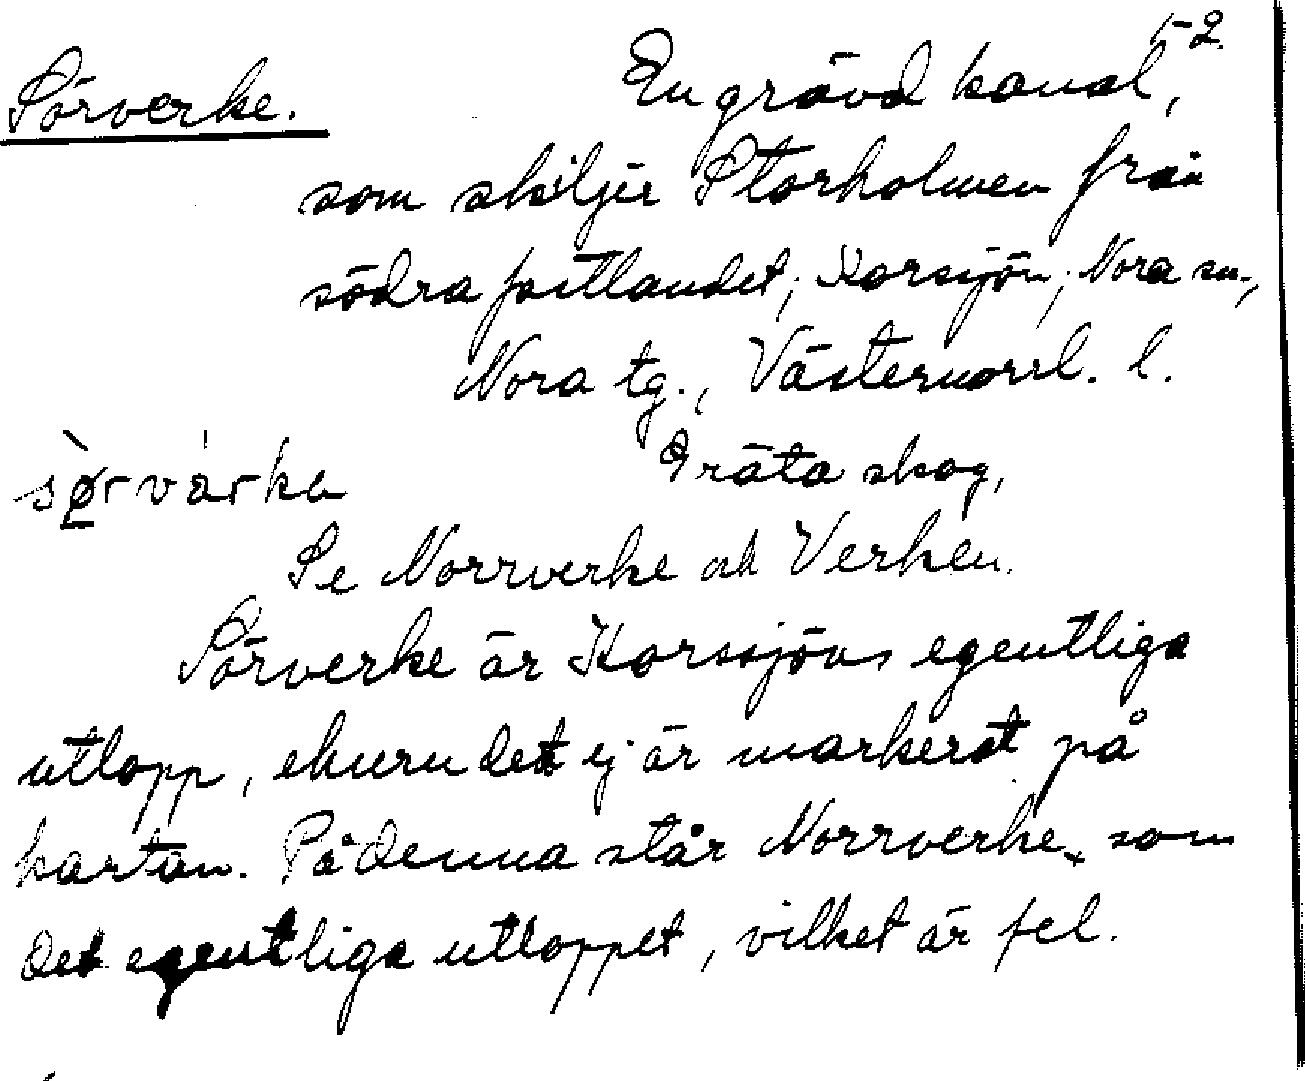 1-2
Sörverke. En grävd kanal,
som skiljer Storholmen från
södra fastlandet; Korsjön; Nora sn.,
Nora tg., Västernorrl. l.
Gräta skog,
Se Norrverke och Verken.
Sörverke är Korssjöns egentliga
utlopp, ehuru det ej är markerat på
kartan. På denna står Norrverke som
det egentliga utloppet, vilket är fel.